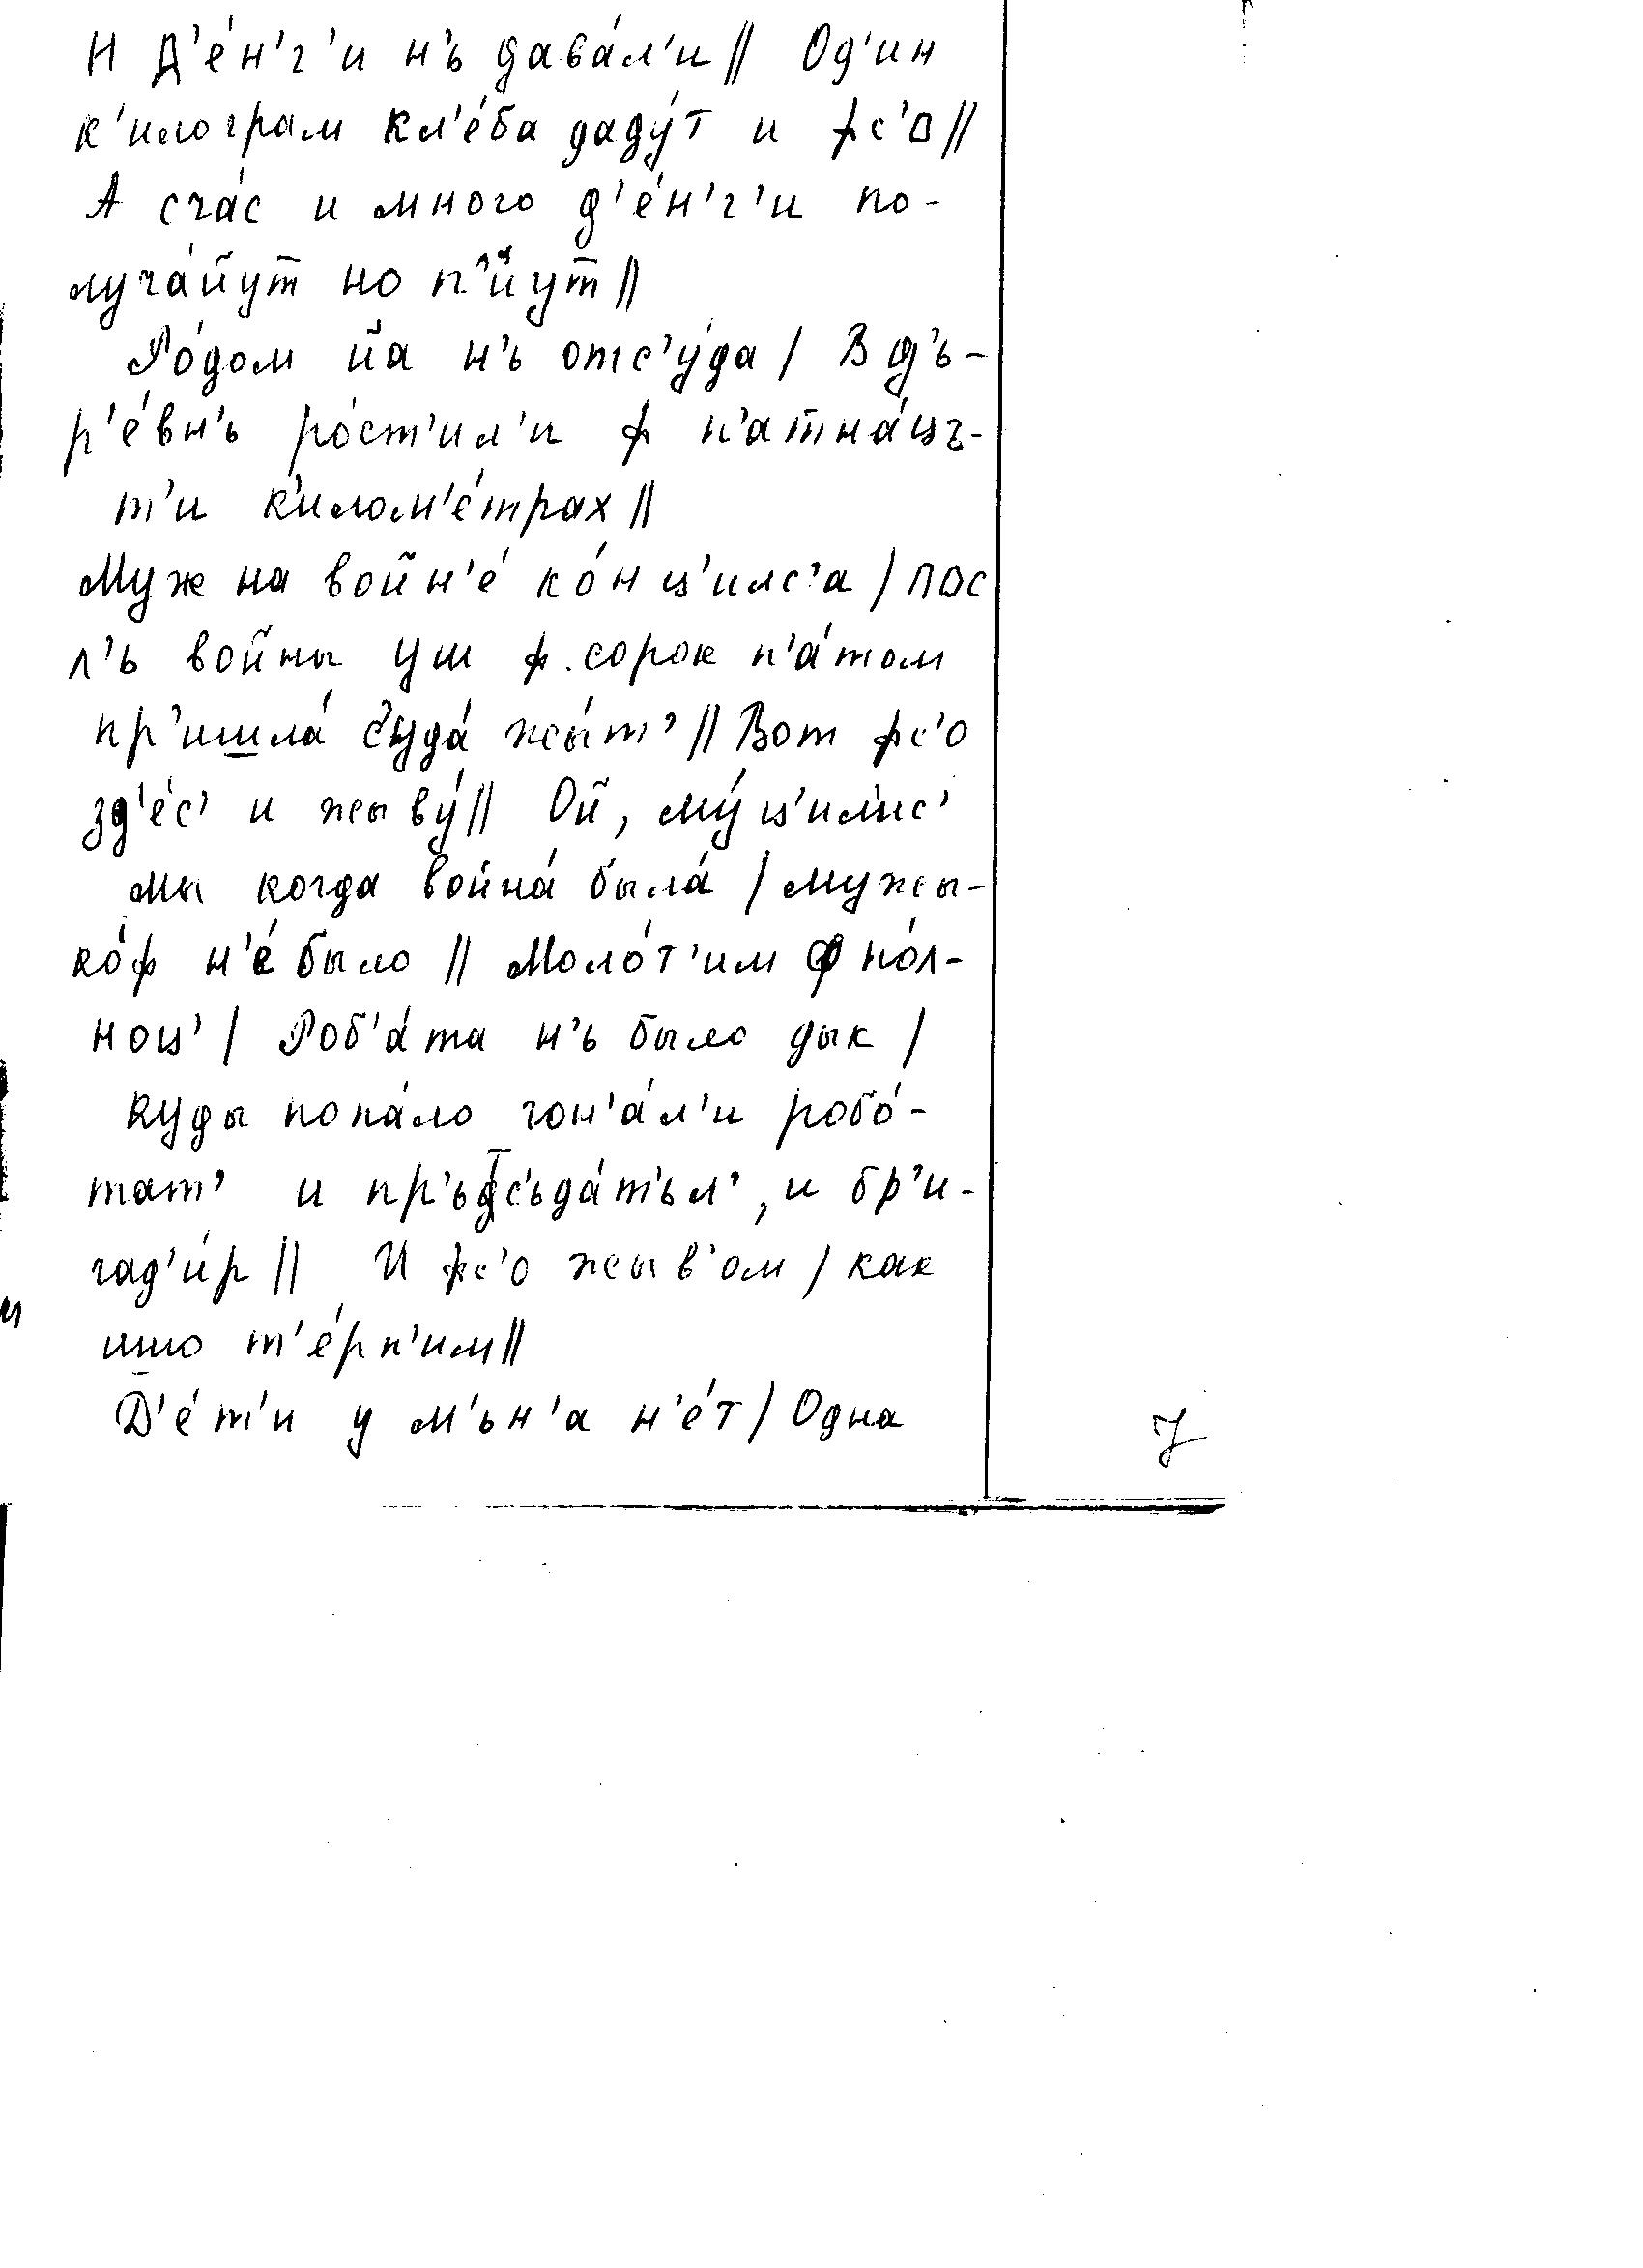 И Д'е́н'г'и н'ь дава́л'и // Од'ин
к'илограм кл'е́ба даду́т и фс'о //
А сча́с и много д'е́н'г'и по-
луча́йут но п'йут //
Ро́дом йа н'ь отс'у́да / В д'ь-
р'е́вн'ь ро́ст'ил'и ф п'атна́цъ-
т'и к'илом'е́трах //
Муж на войн'е́ ко́нц'илс'а / пос
л'ь войны уш ф сорок п'а́том
пр'ишла́ с'уда́ жы́т' // Вот фс'о
зд'е́с' и жыву́ // Ой, му́ц'ил'ис'
мы когда война́ была́ / мужы-
ко́ф н'е́ было // Моло́т'им ф по́л-
ноц' / Роб'а́та н'ь было дык /
куды попа́ло гон'а́л'и робо́-
тат' и пр'ьтс'ьда́т'ьл', и бр'и-
гад'и́р // И фс'о жыв'ом / как
ишо т'е́рп'им //
Д'е́т'и у м'ьн'а н'е́т / Одна
7